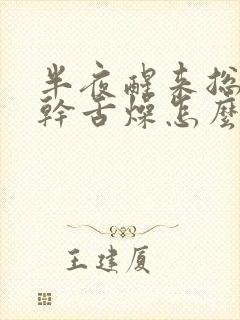 半夜醒来总
幹舌燥怎麼
王建厦